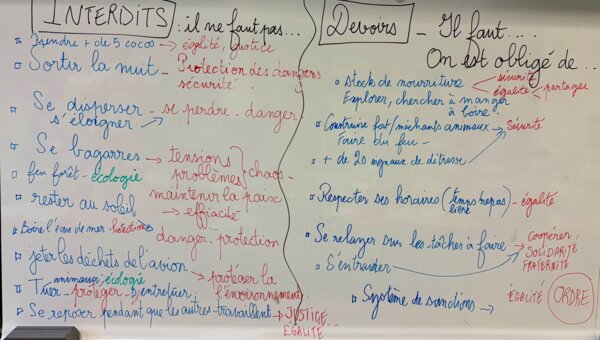 INTERDITS : il ne faut pas...
Prendre + de 5 cocos → égalité, justice
Sortir la nuit - Protection des dangers
sécurité.
Se disperser - se perdre - danger
s'éloigner
Se bagarres → tensions
problèmes chaos
feu forêt - écologie
maintenir la paix
rester au soleil → efficacité
Boire l'eau de mer -
danger - protection
jeter les déchets de l'avion
→ protéger la
l'environnement
Tuer animaux écologie
- protéger - s'entretuer
Se reposer pendant que les autres travaillent → JUSTICE
EGALITE
Devoirs - Il faut...
On est obligé de..
stock de nourriture sécurité
égalité partages
Explorer, chercher à manger
à boire.
Construire fort/méchants animaux → sécurité
Faire du feu -
+ de 20 signaux de détresse
Respecter ses horaires (temps repas) - égalité
Se relayer sur les tâches à faire → coopérer,
SOLIDARITÉ
FRATERNITÉ
S'entraider
Système de sanctions → ÉGALITÉ ORDRE